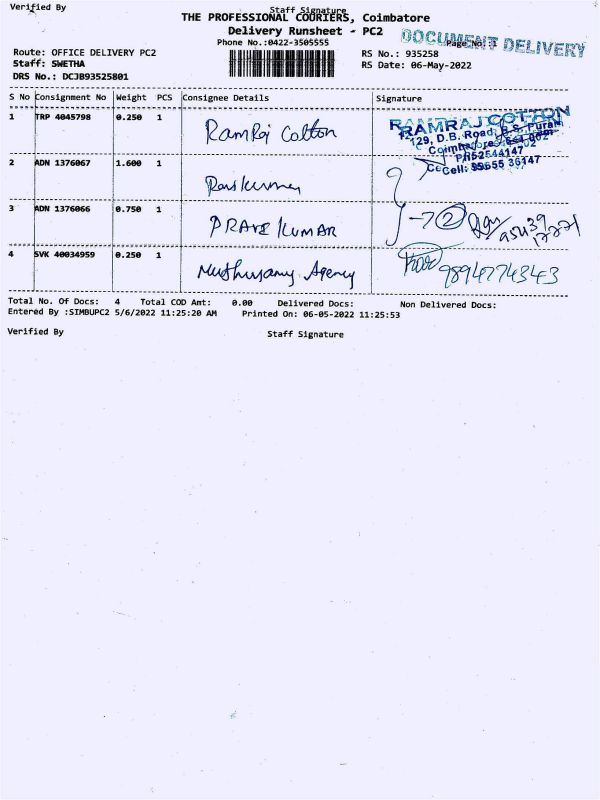 Verified By Staff Signature
THE PROFESSIONAL COURIERS, Coimbatore
Delivery Runsheet - PC2
DOCUMENT DELIVERY
Phone No.:0422-3505555
Page No: 1
Route: OFFICE DELIVERY PC2 RS No.: 935258
Staff: SWETHA RS Date: 06-May-2022
DRS No.: DCJB93525801
S No Consignment No Weight PCS Consignee Details Signature
1 TRP 4045798 0.250 1 RamRaj Cotton
RAMRAJ COTTON
129, D.B. Road, R.S. Puram
Coimbatore
2 ADN 1376067 1.600 1
3 ADN 1376066 0.750 1 PRAVE KUMAR
4 SVK 40034959 0.250 1 Muthusamy Agency 9894774343
Total No. Of Docs: 4 Total COD Amt: 0.00 Delivered Docs: Non Delivered Docs:
Entered By :SIMBUPC2 5/6/2022 11:25:20 AM Printed On: 06-05-2022 11:25:53
Verified By Staff Signature